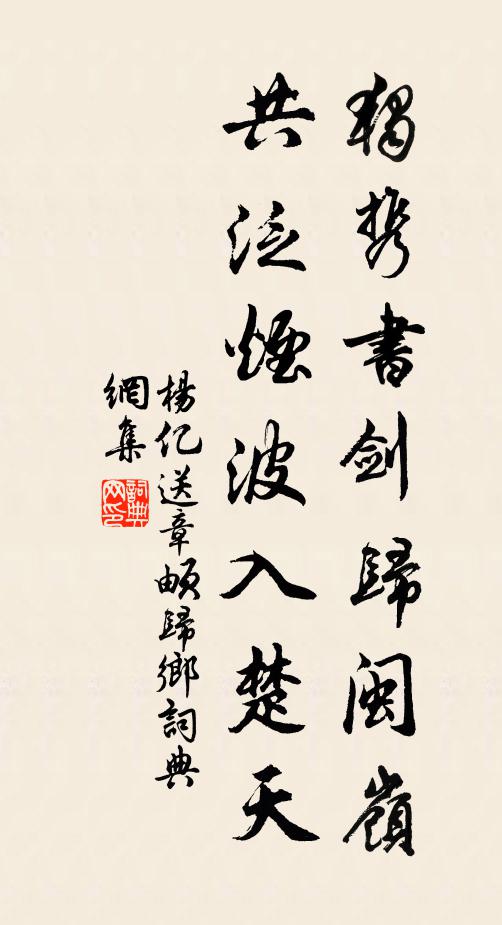 獨携書劍歸閩嶺
共泛煙波入楚天
楊億送章頔歸鄉詞典
網集
詞典
網印